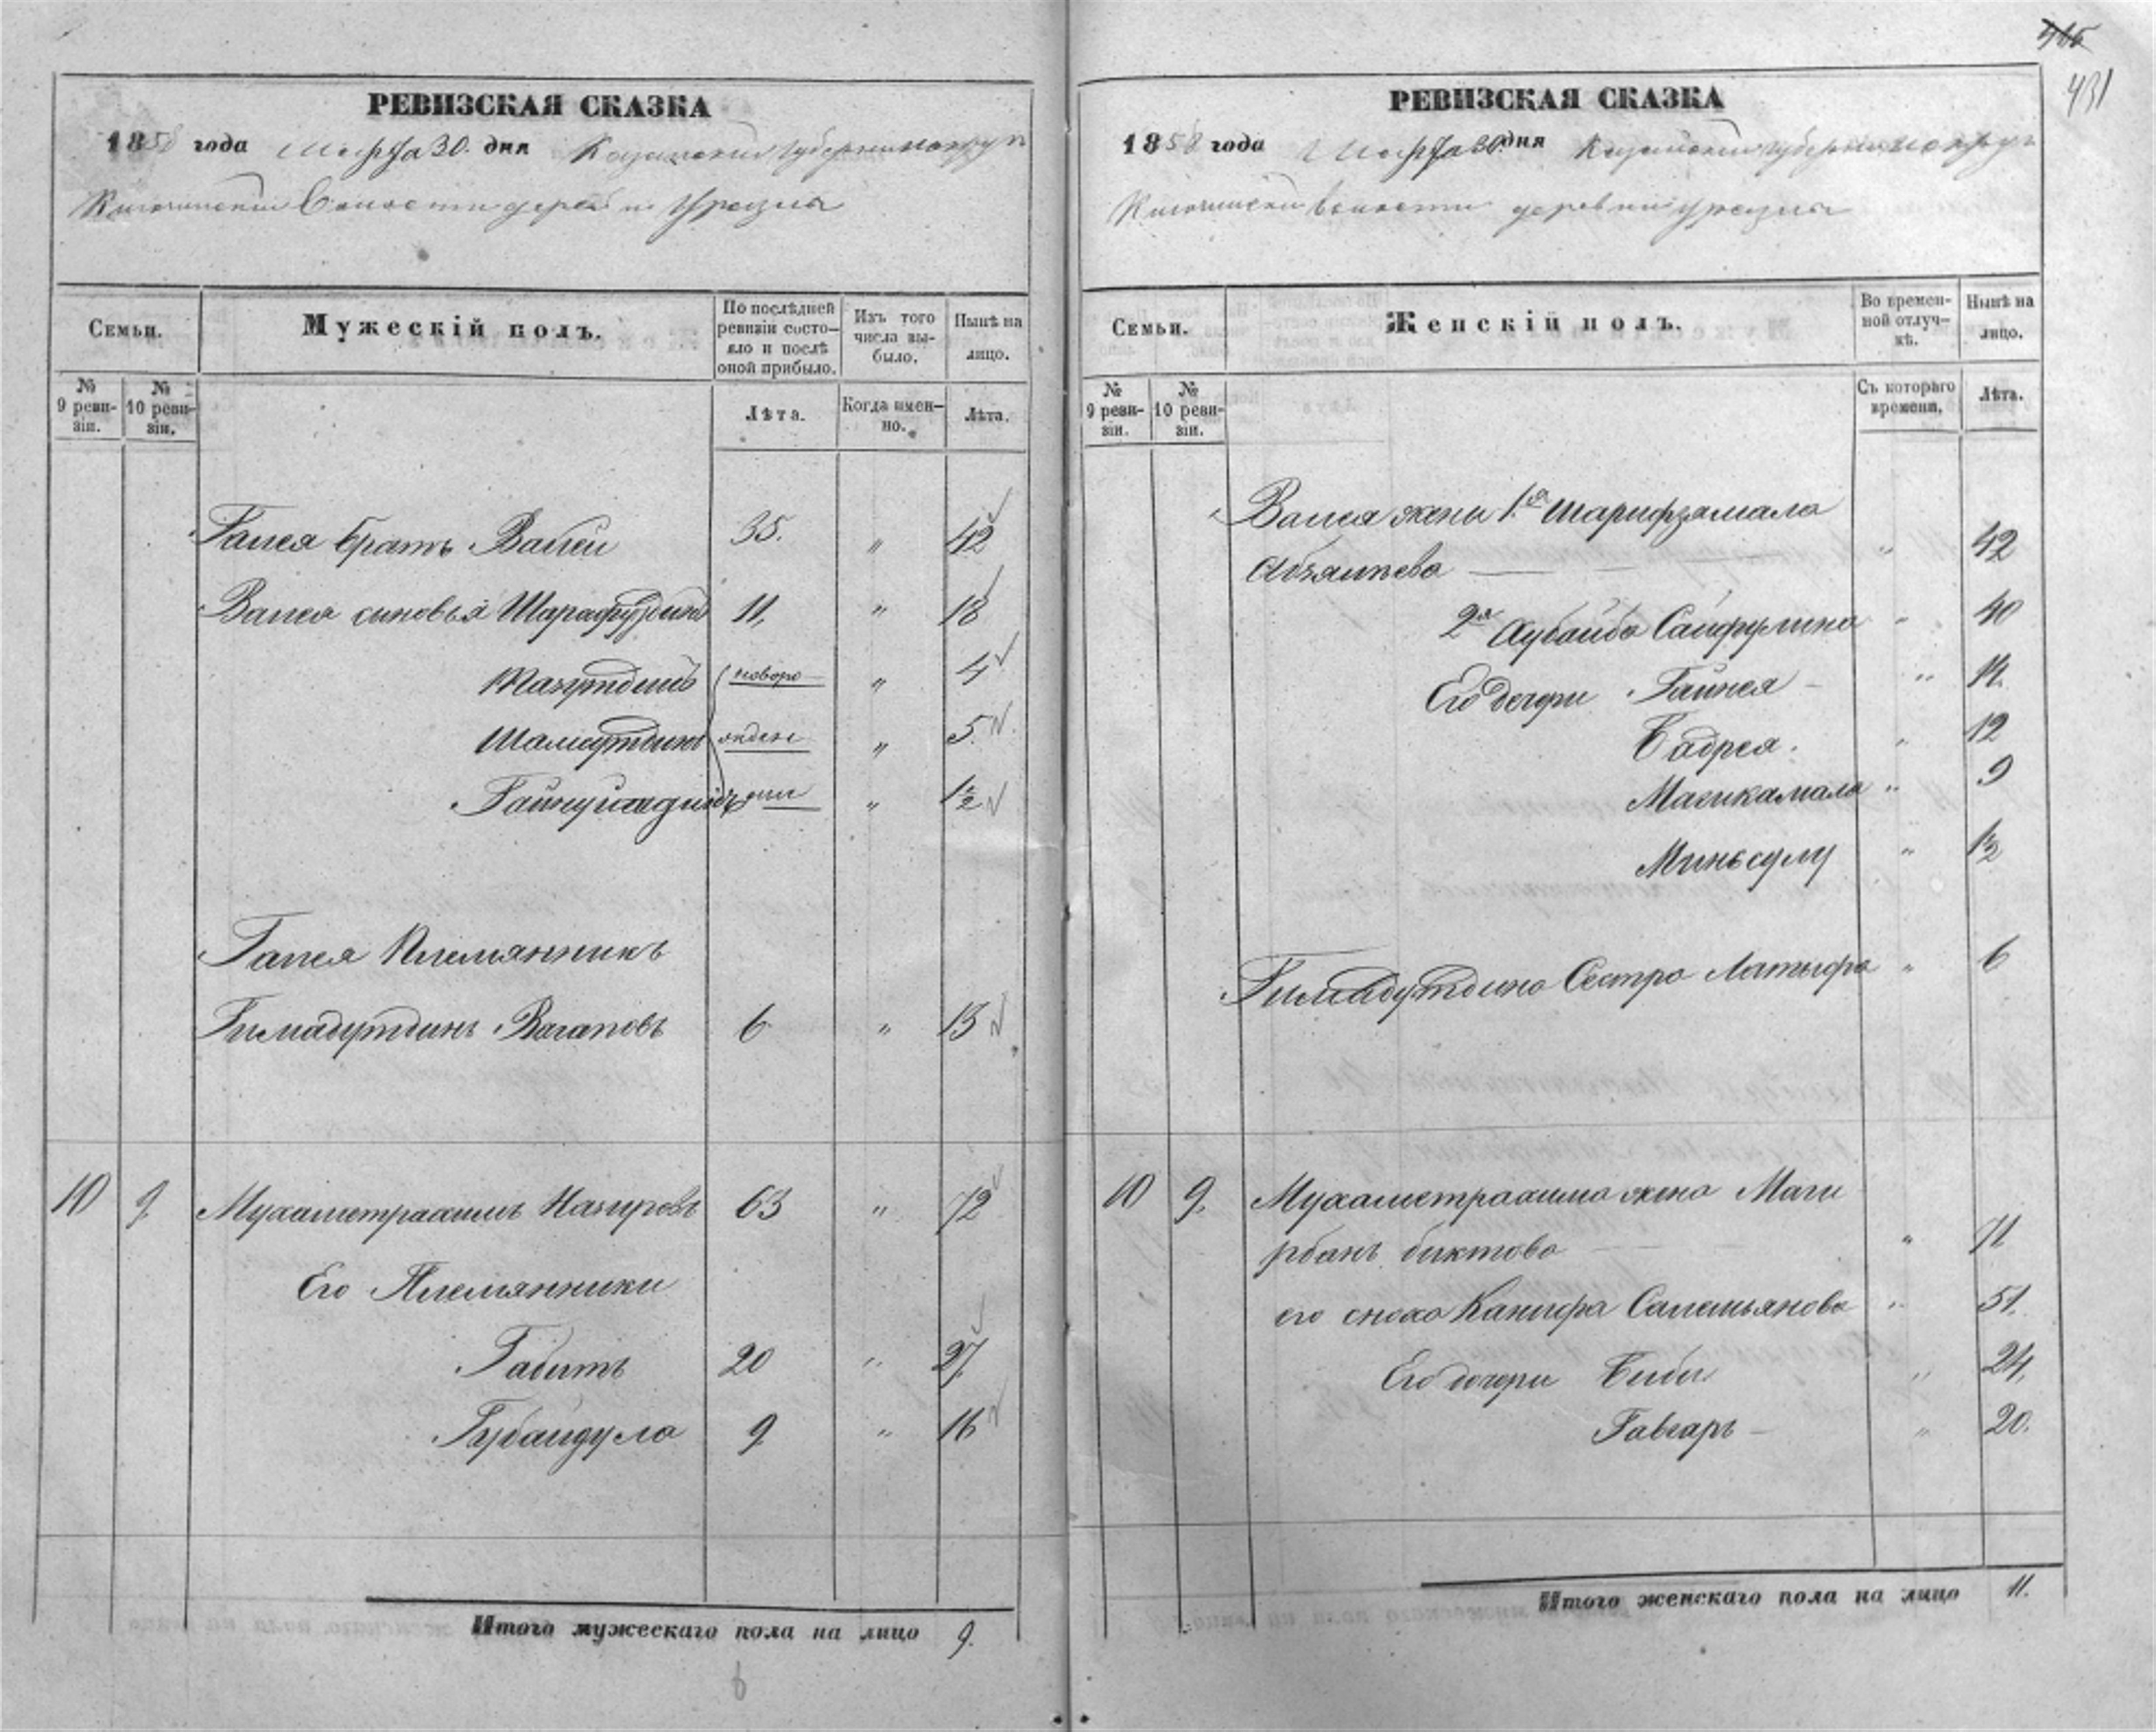 365
431
РЕВИЗСКАЯ СКАЗКА
1858 года Марта 30. дня Казанской Губернии
волости деревни
Семьи.
Мужескій полъ.
По послѣдней ревизіи состо-
яло и послѣ оной прибыло.
Изъ того числа вы-
было.
Нынѣ на лицо.
№ 9 реви-
зіи.
№ 10 реви-
зіи.
Лѣта.
Когда имен-
но.
Лѣта.
Галея братъ Валей 35. " 42
Валея сыновья Шарафутдинъ 11, " 18
новоро " 4
Шамсутдинъ жден " 5
ныи " 1/2
Галея Племянникъ
Гимадутдинъ Вагаповъ 6 " 13
10 9. Мухаметрахимъ Назировъ 63 " 72
Его Племянники
Габитъ 20 " 27
Губайдула 9 " 16
Итого мужескаго пола на лицо 9.
РЕВИЗСКАЯ СКАЗКА
1858 года Марта 30. дня Казанской губернии
волости деревни
Семьи.
Женскій полъ.
Во времен-
ной отлуч-
кѣ.
Нынѣ на лицо.
№ 9 реви-
зіи.
№ 10 реви-
зіи.
Съ котораго времени.
Лѣта.
Валея жены 1.я Шарифзямала
" 42
2я Сайфулина " 40
Его дочери " 14.
Бадрея. " 12
Магикамала " 9
Миньсулу " 1/2
Гимадутдина Сестра Латыфа " 6
10 9. Мухаметрахима жена Маги
" 71
его сноха Ханифа Салемьянова " 51.
Его дочери Биби " 24,
Гавгаръ — " 20.
Итого женскаго пола на лицо 11.